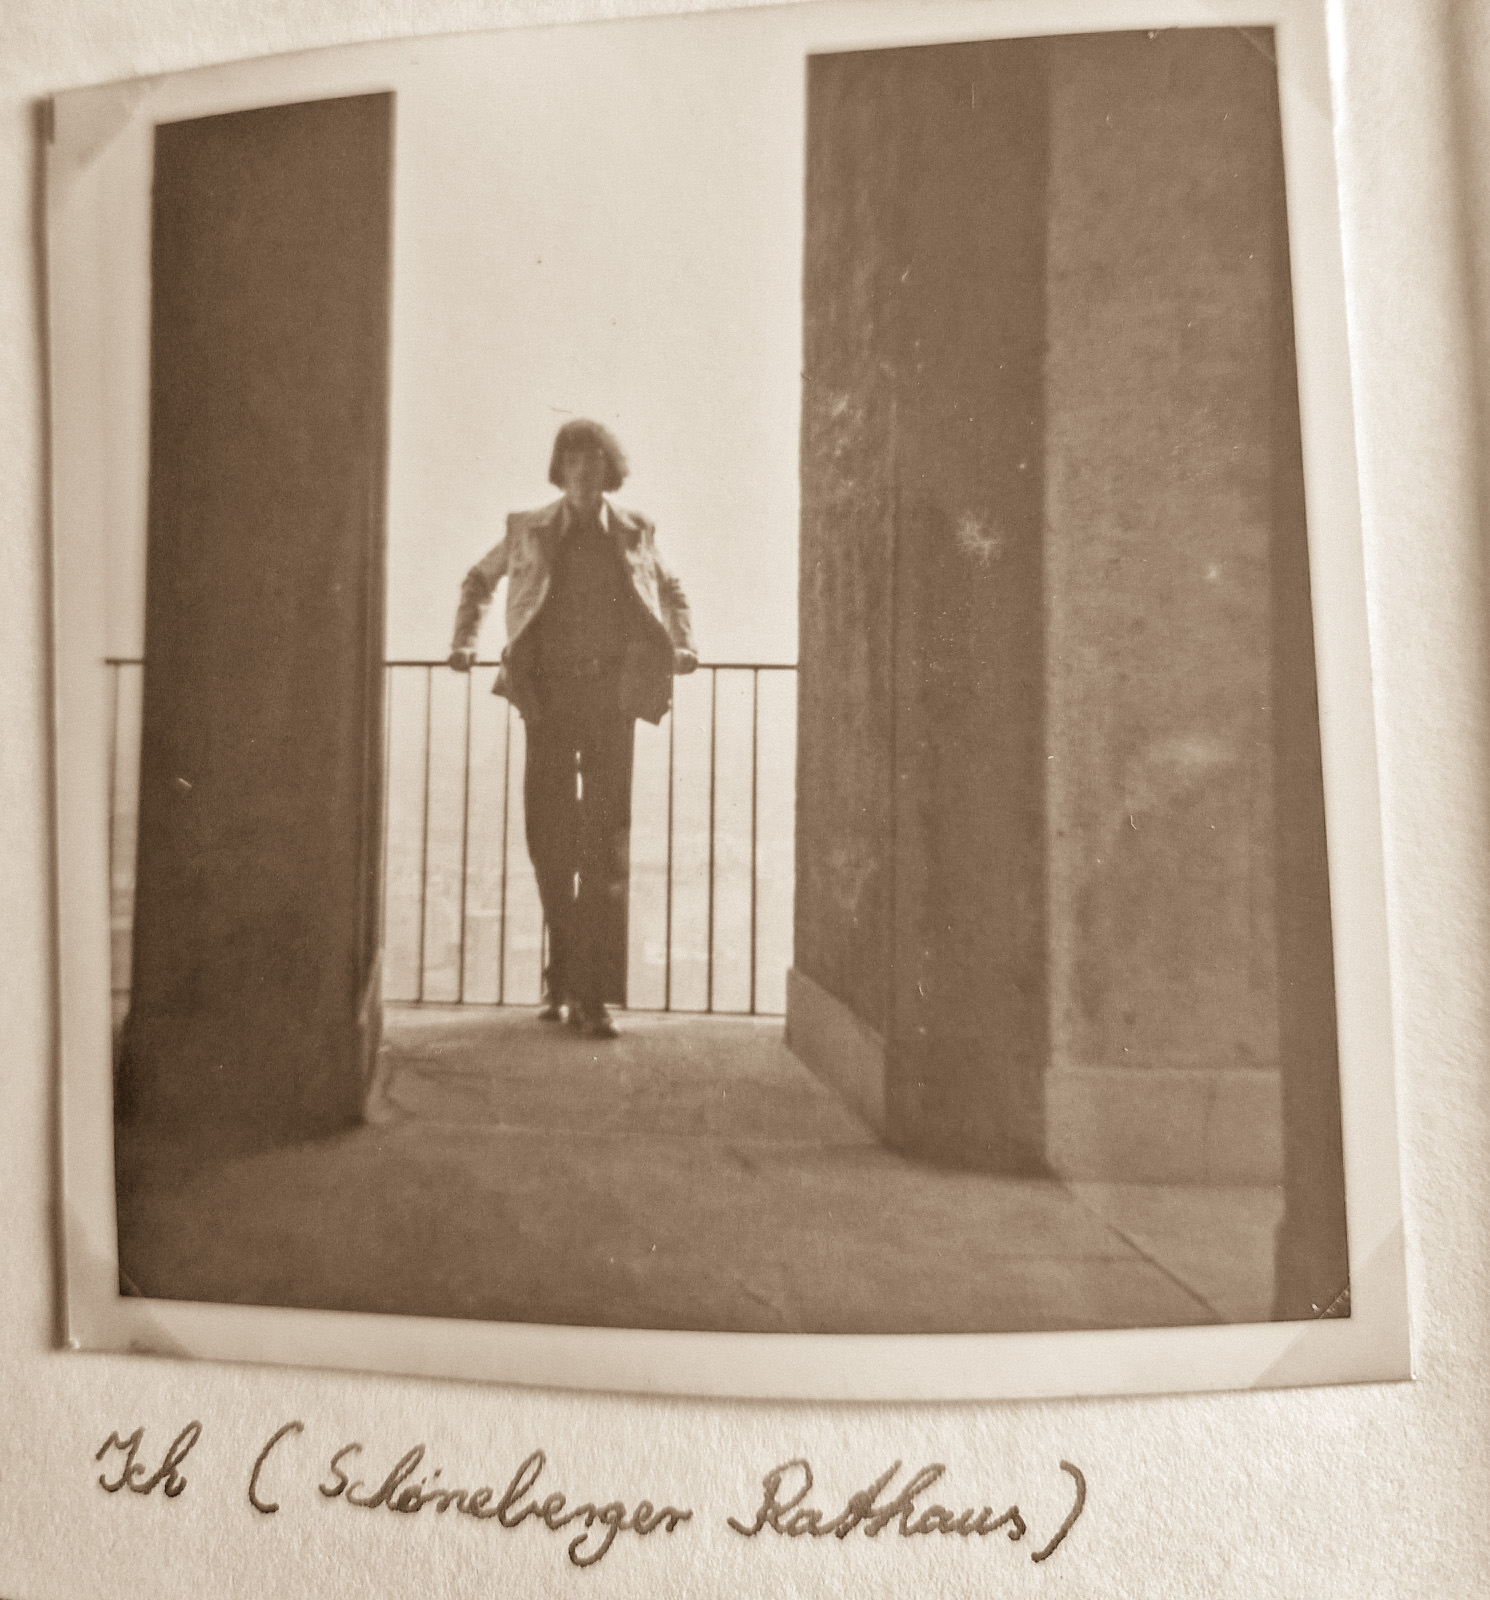 Ich (Schöneberger Rathaus)